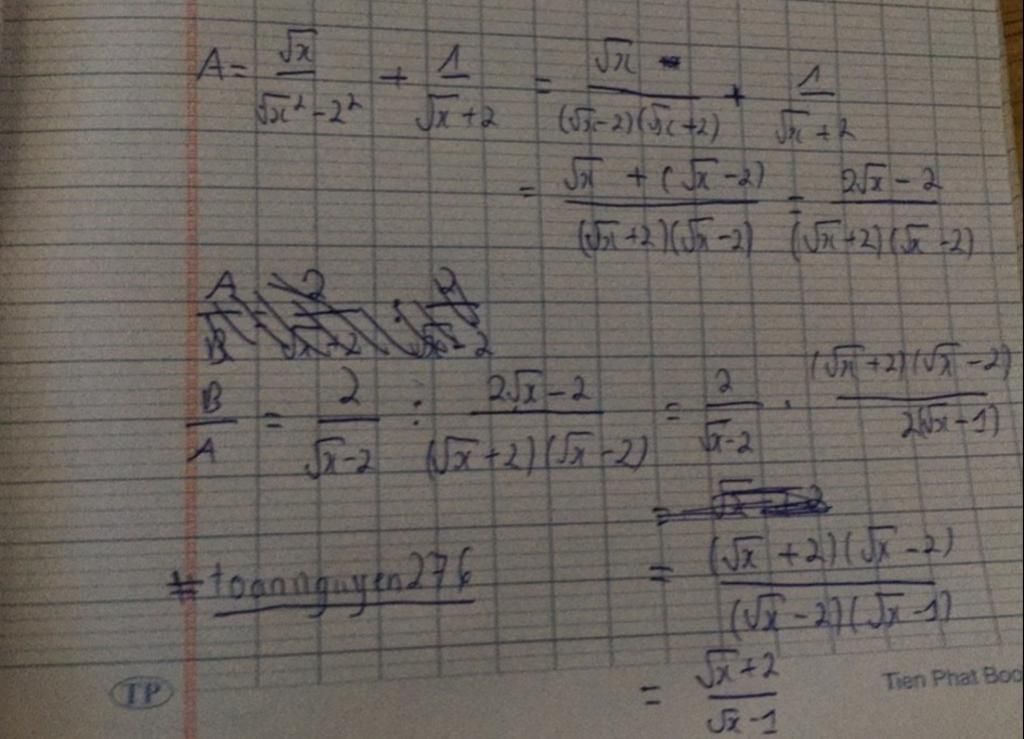 A = √x / (√x² - 2²) + 1 / (√x + 2) = √x / ((√x - 2)(√x + 2)) + 1 / (√x + 2)
= (√x + (√x - 2)) / ((√x + 2)(√x - 2)) = (2√x - 2) / ((√x + 2)(√x - 2))
B / A = 2 / (√x - 2) : (2√x - 2) / ((√x + 2)(√x - 2)) = 2 / (√x - 2) . ((√x + 2)(√x - 2)) / (2(√x - 1))
= ((√x + 2)(√x - 2)) / ((√x - 2)(√x - 1))
#toannguyen276
= (√x + 2) / (√x - 1)
TP
Tien Phat Boo